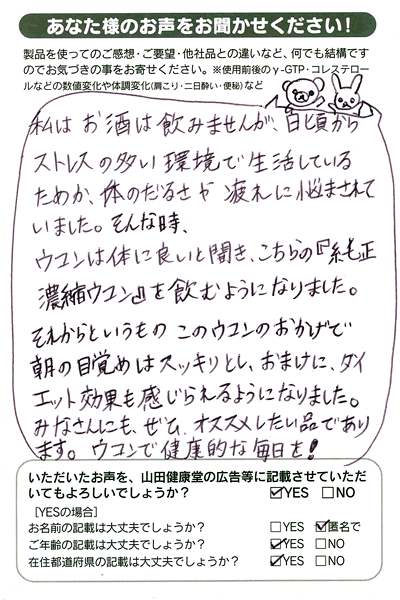 あなた様のお声をお聞かせください！
製品を使ってのご感想・ご要望・他社品との違いなど、何でも結構です
のでお気づきの事をお寄せください。※使用前後のγ-GTP・コレステロー
ルなどの数値変化や体調変化(肩こり・二日酔い・便秘)など
私は お酒は飲みませんが、日頃から
ストレスの多い環境で生活している
ためか、体のだるさや 疲れに悩まされて
いました。そんな時、
ウコンは体に良いと聞き、こちらの『純正
濃縮ウコン』を飲むようになりました。
それからというもの このウコンのおかげで
朝の目覚めはスッキリとし、おまけに、ダイ
エット効果も感じられるようになりました。
みなさんにも、ぜひ、オススメしたい品であり
ます。ウコンで健康的な毎日を！
いただいたお声を、山田健康堂の広告等に記載させていただ
いてもよろしいでしょうか？ ☑YES □NO
［YESの場合］
お名前の記載は大丈夫でしょうか？ □YES ☑匿名で
ご年齢の記載は大丈夫でしょうか？ ☑YES □NO
在住都道府県の記載は大丈夫でしょうか？ ☑YES □NO